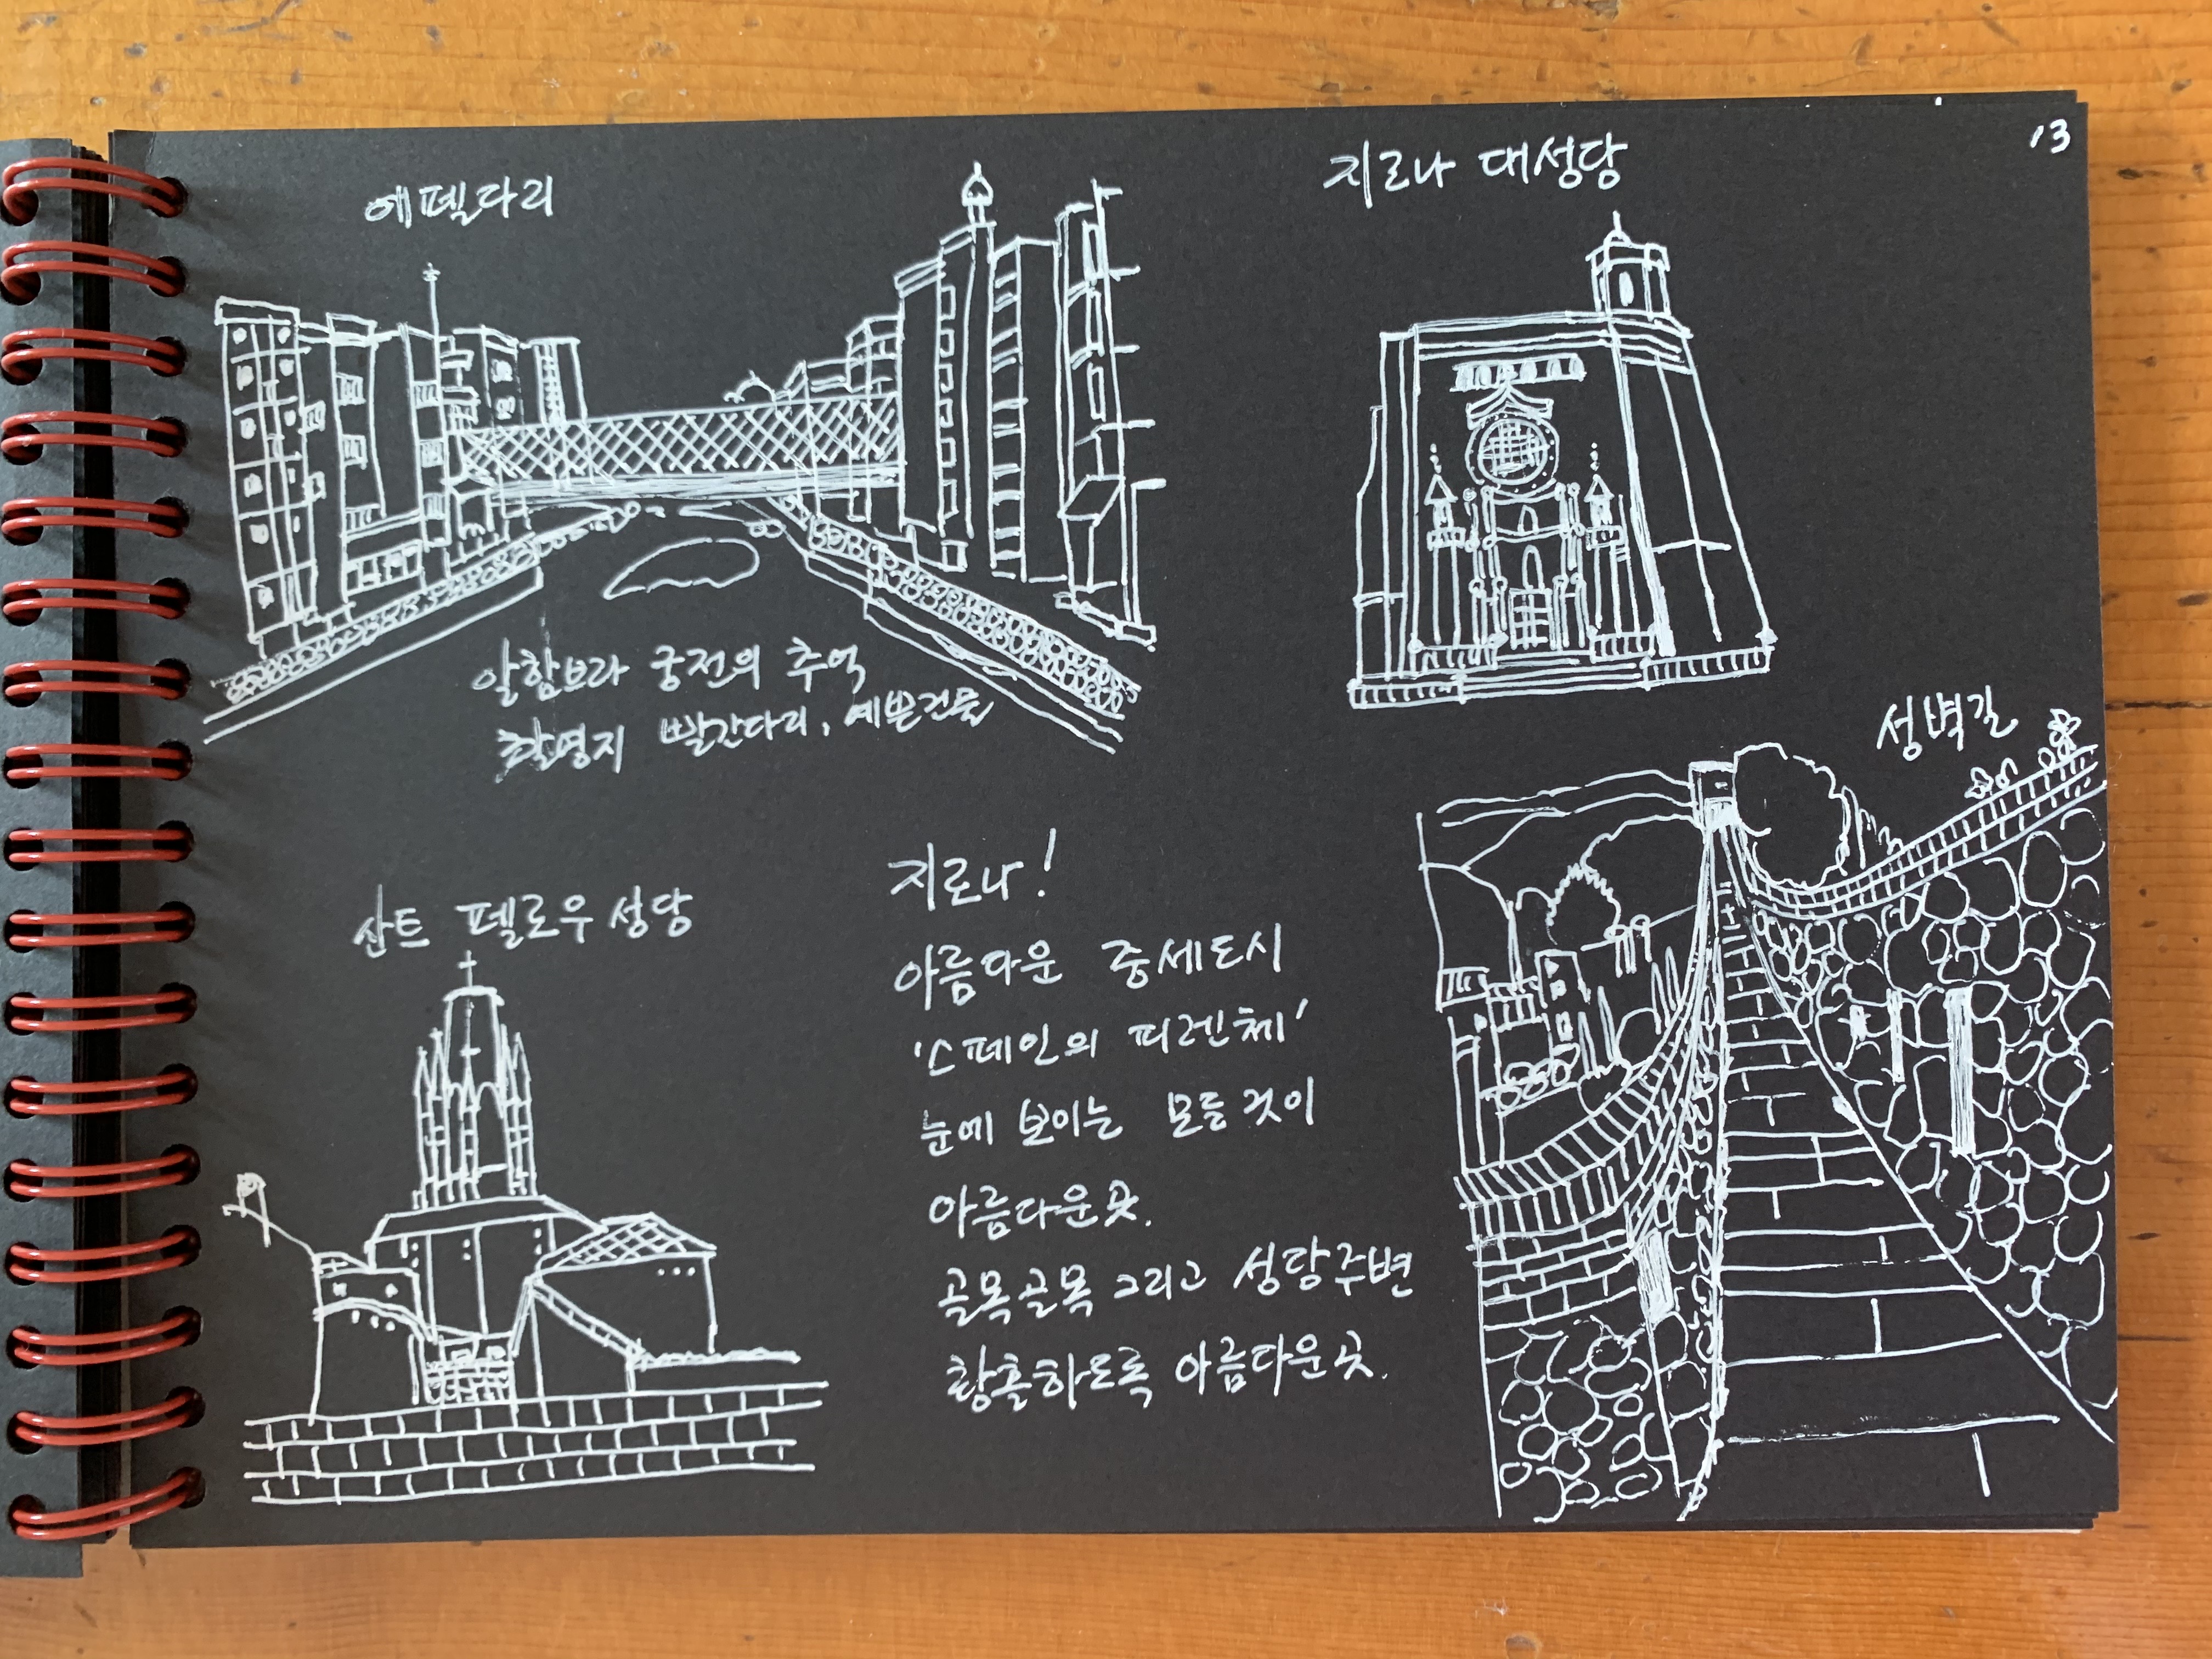 13
에펠다리
지로나 대성당
알함브라 궁전의 추억
촬영지 빨간다리, 예쁜건물
성벽길
산트 펠로우 성당
지로나!
아름다운 중세도시
'스페인의 피렌체'
눈에 보이는 모든 것이
아름다운곳.
골목골목 그리고 성당주변
황홀하도록 아름다운곳.